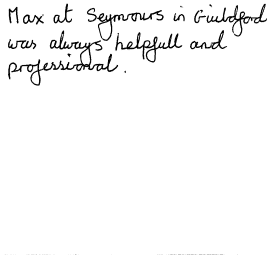 Max at Seymours in Guildford
was always helpfull and
professional.